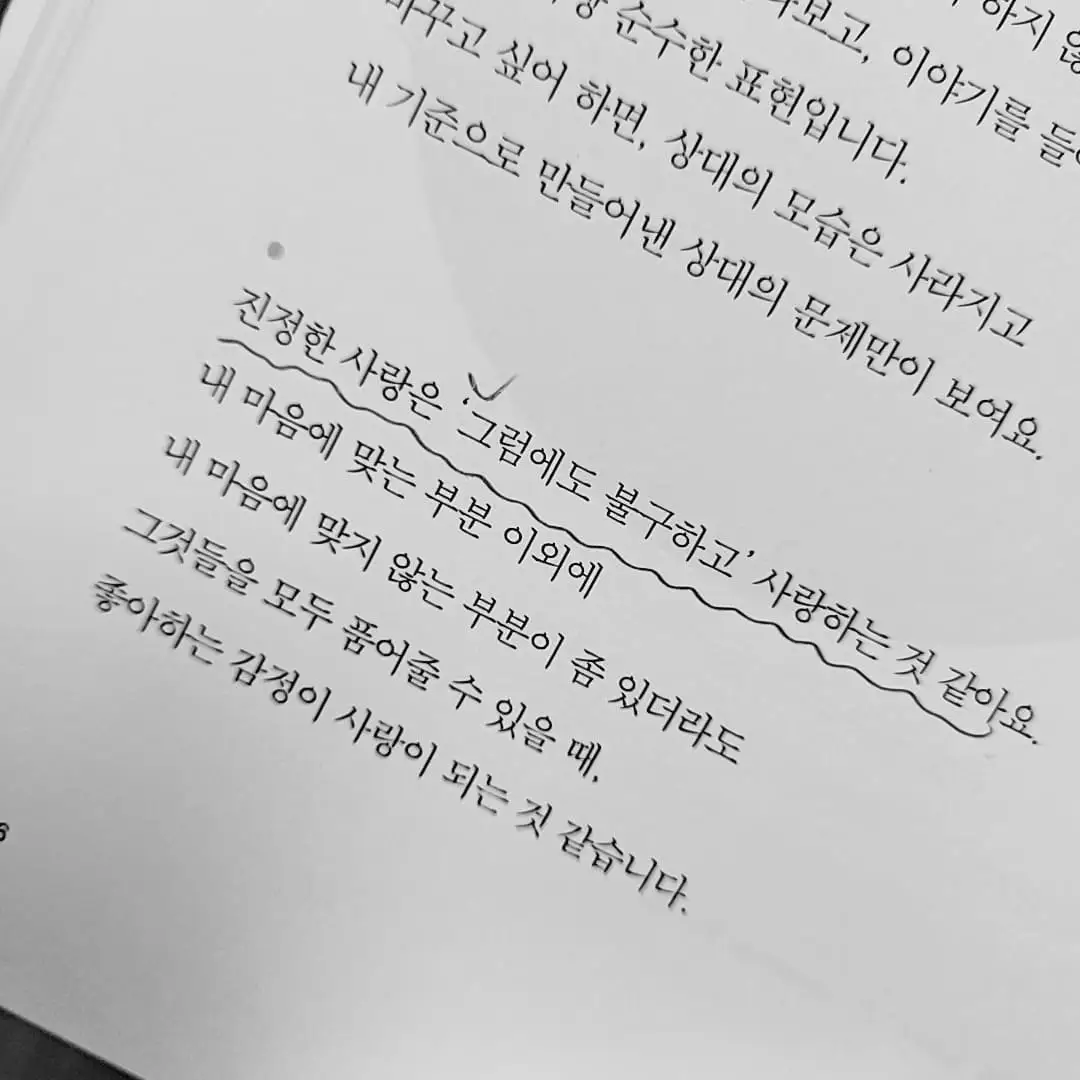 하지 않
이야기를
순수한 표현입니다.
바꾸고 싶어 하면, 상대의 모습은 사라지고
내 기준으로 만들어낸 상대의 문제만이 보여요.
진정한 사랑은 ‘그럼에도 불구하고’ 사랑하는 것 같아요.
내 마음에 맞는 부분 이외에
내 마음에 맞지 않는 부분이 좀 있더라도
그것들을 모두 품어줄 수 있을 때,
좋아하는 감정이 사랑이 되는 것 같습니다.
6